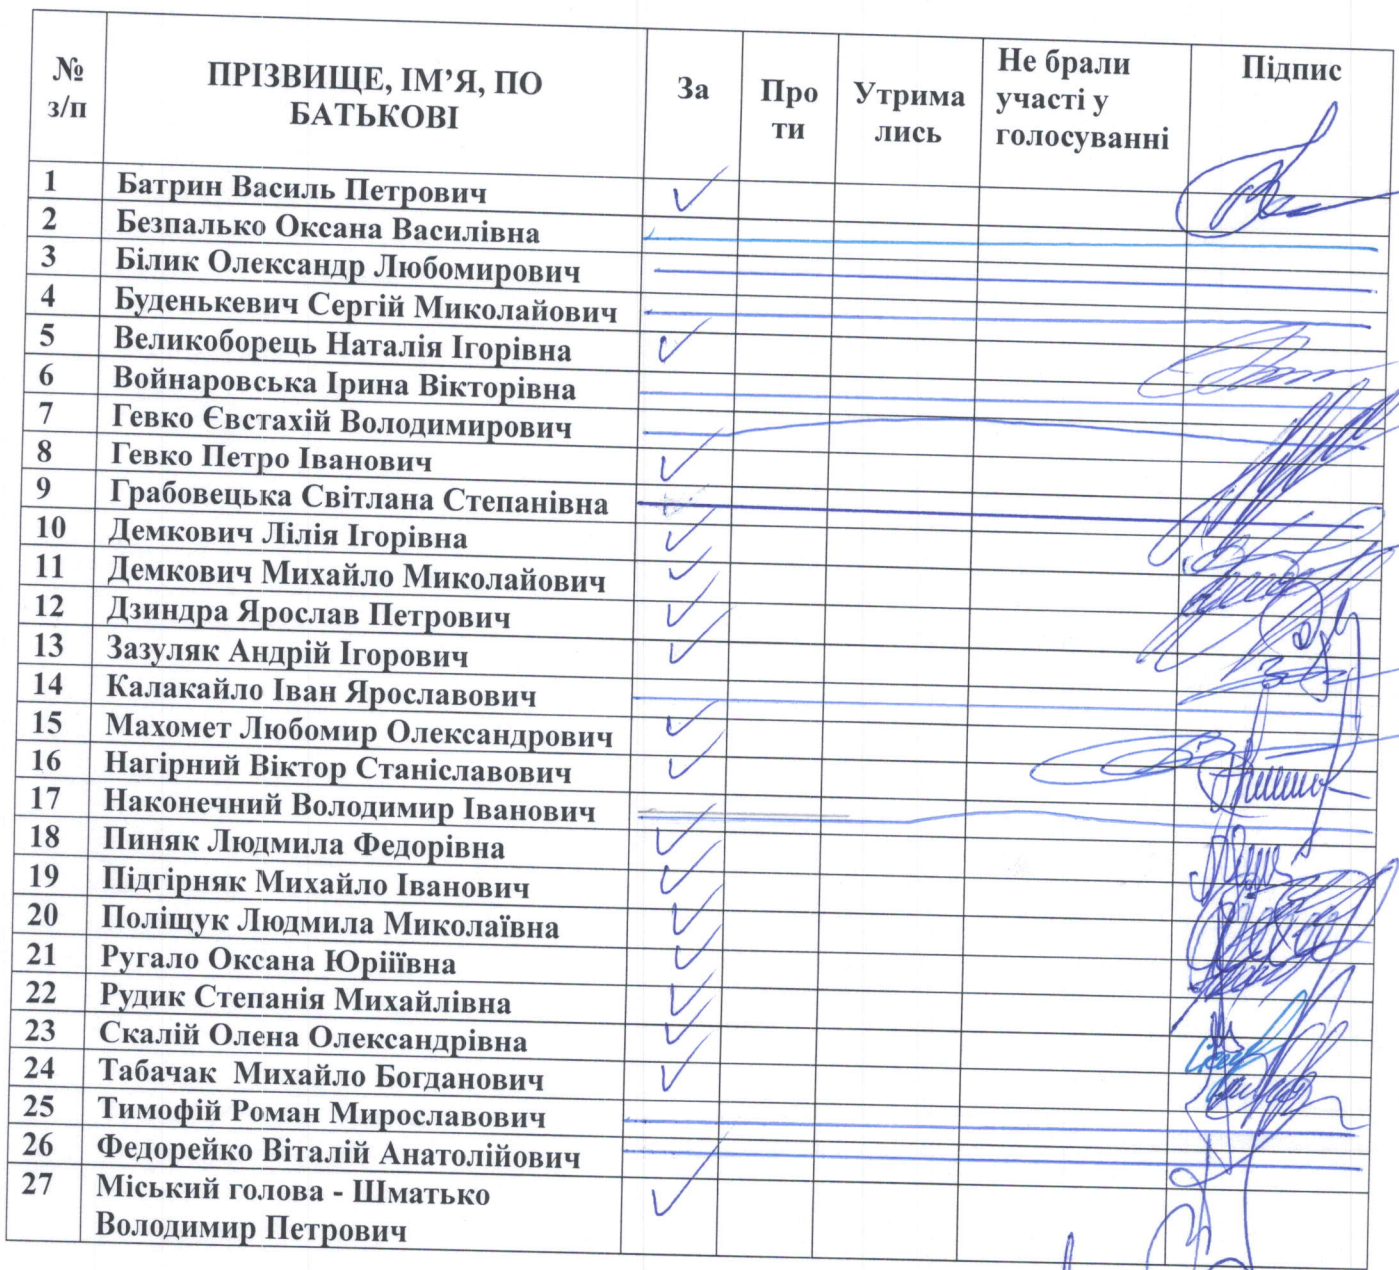 № з/п ПРІЗВИЩЕ, ІМ’Я, ПО БАТЬКОВІ За Про ти Утрима лись Не брали участі у голосуванні Підпис
1 Батрин Василь Петрович ✓
2 Безпалько Оксана Василівна
3 Білик Олександр Любомирович
4 Буденькевич Сергій Миколайович
5 Великоборець Наталія Ігорівна ✓
6 Войнаровська Ірина Вікторівна
7 Гевко Євстахій Володимирович
8 Гевко Петро Іванович ✓
9 Грабовецька Світлана Степанівна
10 Демкович Лілія Ігорівна ✓
11 Демкович Михайло Миколайович ✓
12 Дзиндра Ярослав Петрович ✓
13 Зазуляк Андрій Ігорович ✓
14 Калакайло Іван Ярославович
15 Махомет Любомир Олександрович ✓
16 Нагірний Віктор Станіславович ✓
17 Наконечний Володимир Іванович
18 Пиняк Людмила Федорівна ✓
19 Підгірняк Михайло Іванович ✓
20 Поліщук Людмила Миколаївна ✓
21 Ругало Оксана Юріїівна ✓
22 Рудик Степанія Михайлівна ✓
23 Скалій Олена Олександрівна ✓
24 Табачак Михайло Богданович ✓
25 Тимофій Роман Мирославович
26 Федорейко Віталій Анатолійович
27 Міський голова - Шматько ✓
Володимир Петрович